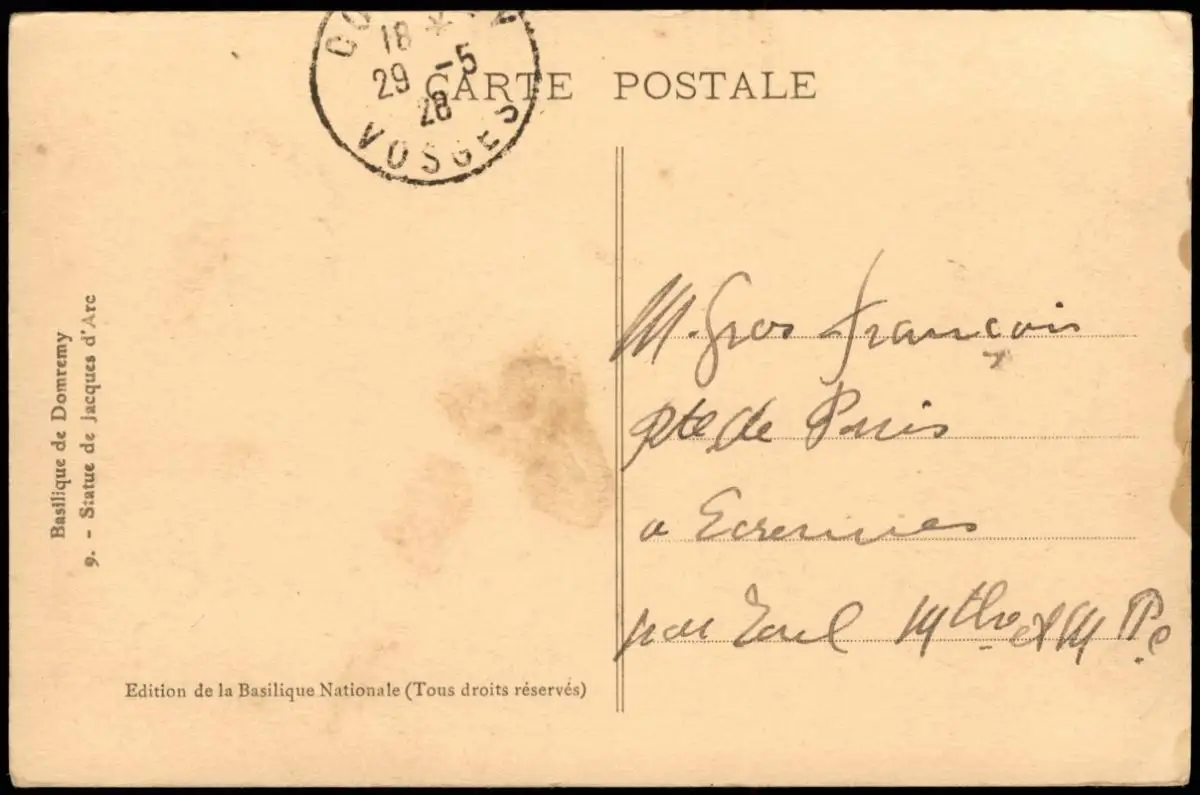 18 *
29 -5
28
VOSGES
CARTE POSTALE
Basilique de Domremy
9. - Statue de Jacques d'Arc
M. Gros François
Pte de Paris
a Ecrennes
par Toul Mthe et M
Edition de la Basilique Nationale (Tous droits réservés)